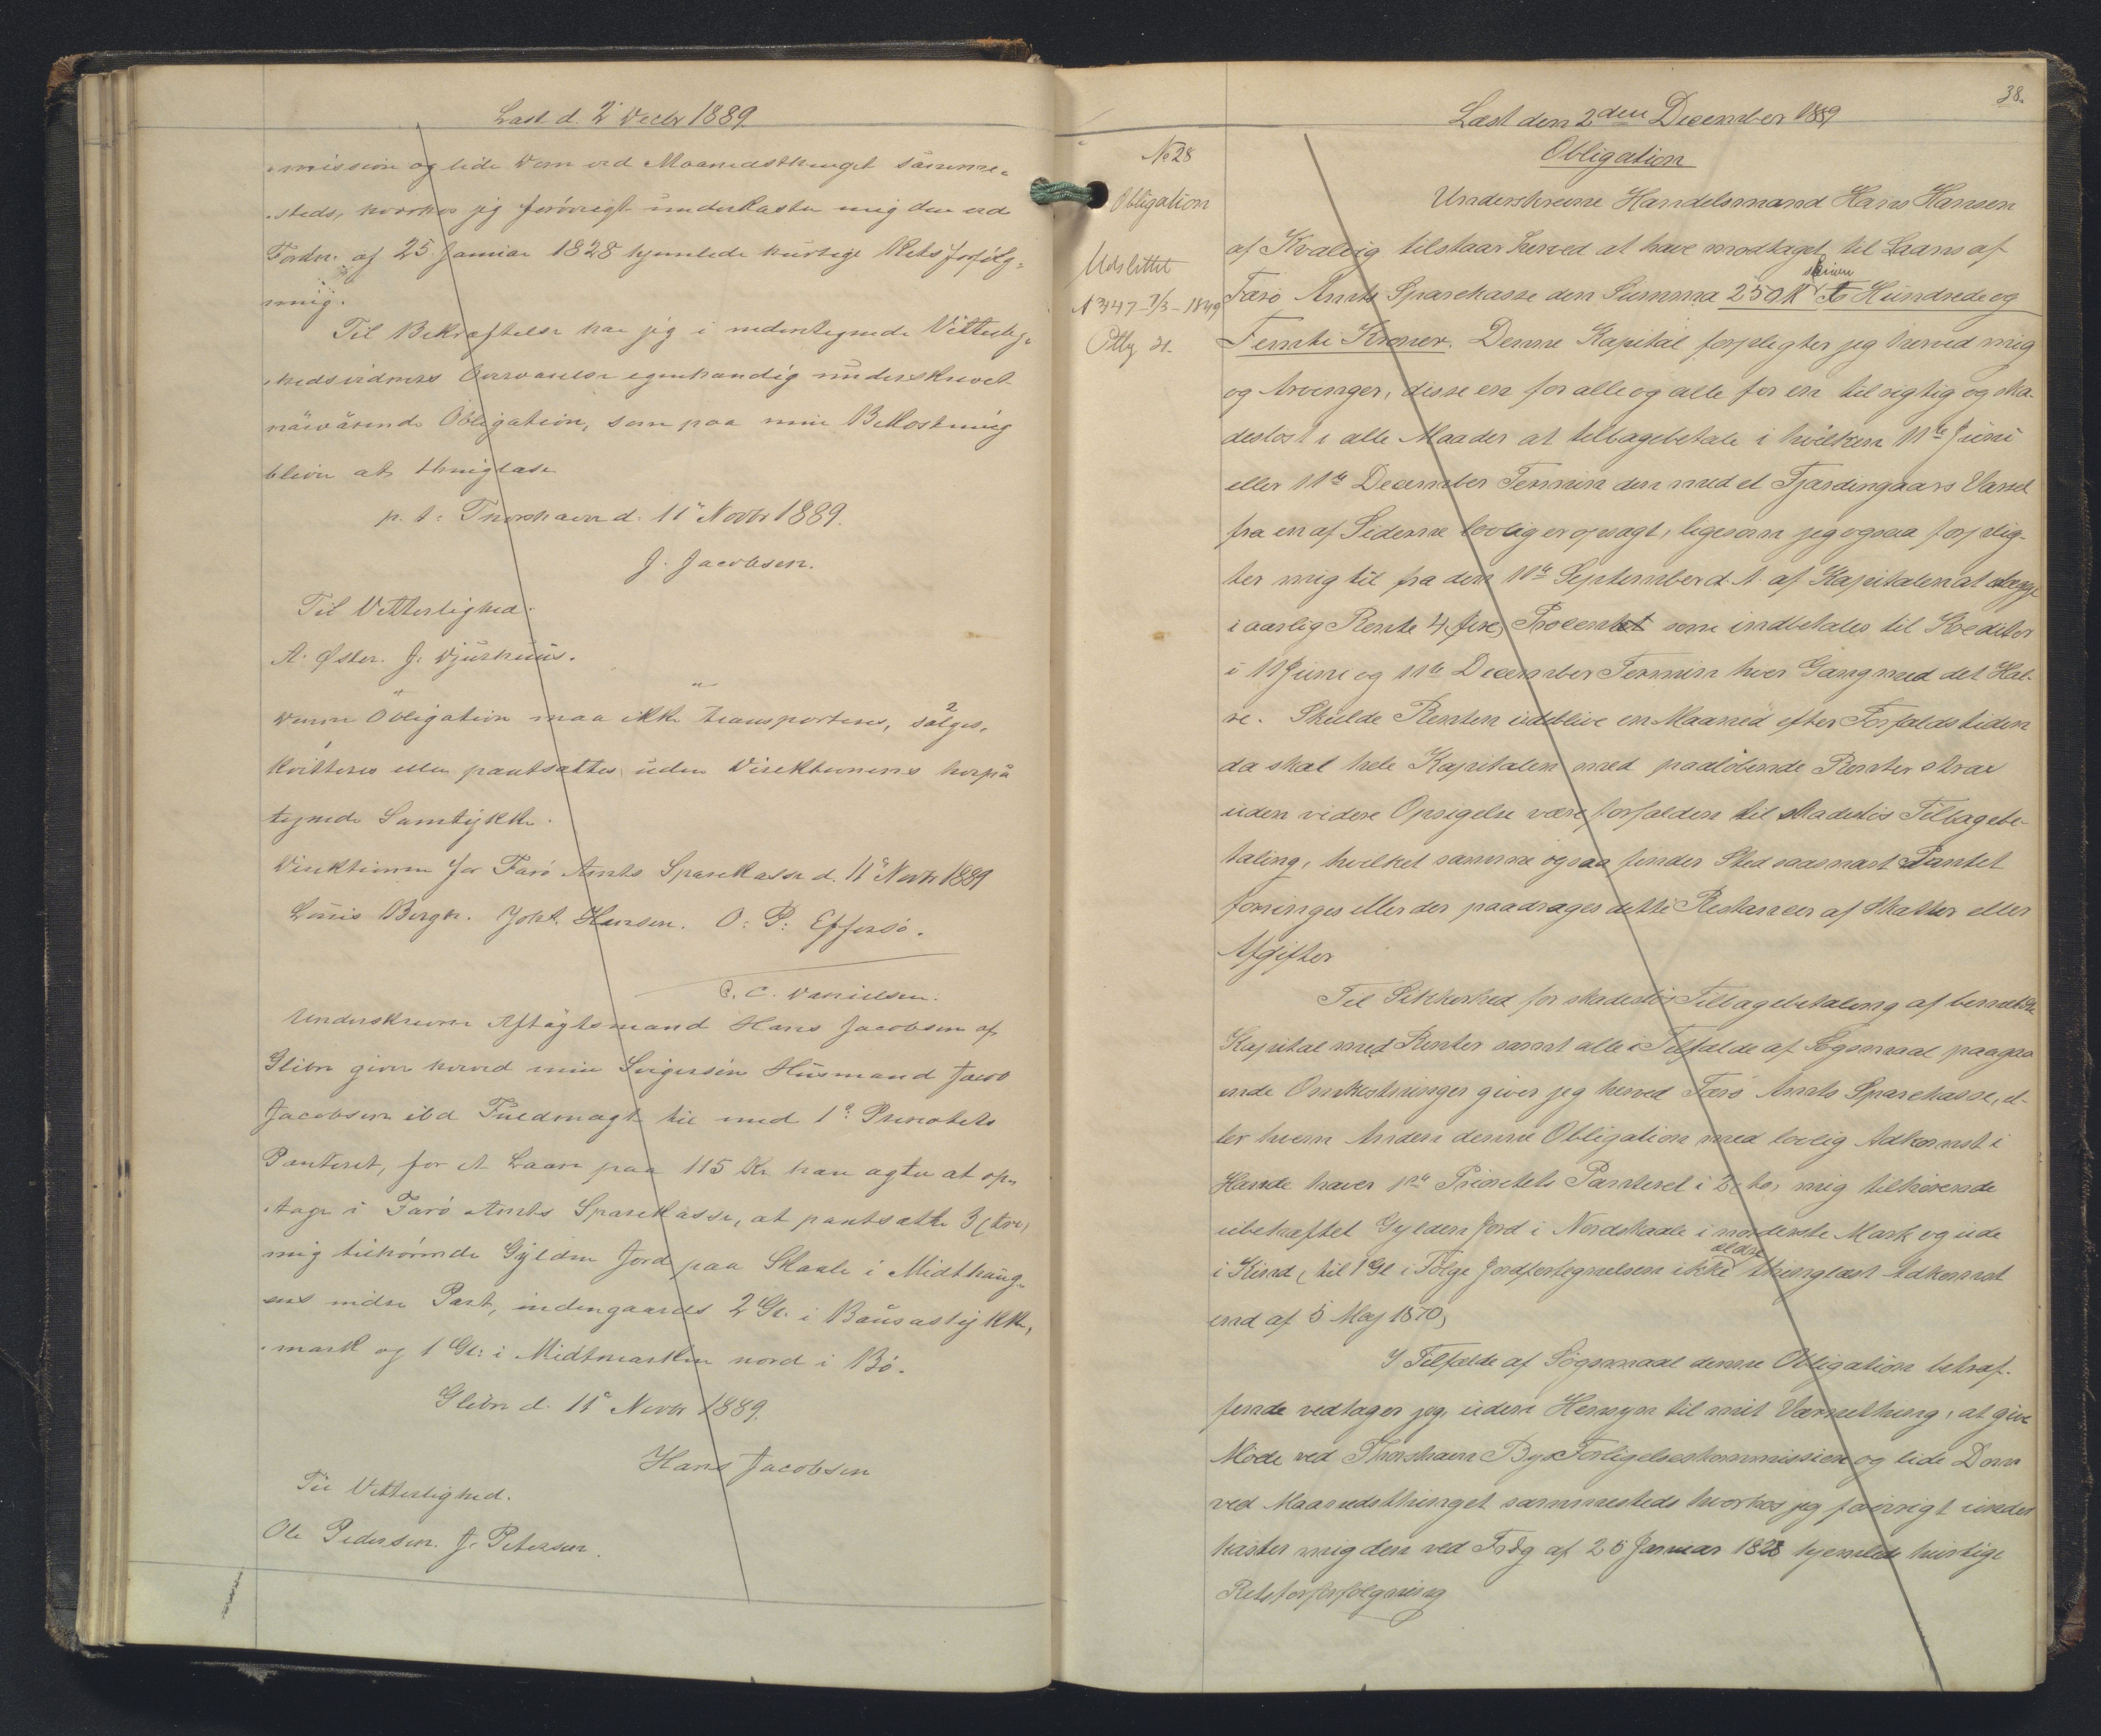 Læst d. 2' Decbr 1889.
mission og lide Dom ved Maanedsthinget samme-
steds, hvorhos jeg forövrigt underkaster mig den ved
Fordn. af 25 Januar 1828 hjemlede hurtige Retsforfölg-
ning.
Til Bekræftelse har jeg i undertegnede Vitterlig-
hedsvidners Overværelse egenhændig underskrevet
nærværende Obligation, som paa min Bekostning
bliver at thinglæse
p. t: Thorshavn d. 11' Novbr 1889.
J. Jacobsen.
Til Vitterlighed.
A. Øster. J. Djurhuus.
Denne Obligation maa ikke transporteres, sælges,
kvitteres eller pantsættes uden Direktionens herpå
tegnede Samtykke.
Direktionen for Færö Amts Sparekasse d. 11' Novbr 1889
Louis Bergh. Joh. Hansen. O: P: Effersö.
C. C. Danielsen.
Underskrevne Aftægtsmand Hans Jacobsen af
Glibre giver herved min Svigersön Husmand Jacob
Jacobsen ibd Fuldmagt til med 1' Prioritets
Panteret, for et Laan paa 115 Kr han agter at op-
tage i Færö Amts Sparekasse, at pantsætte 3 (tre)
mig tilhörende Gylden Jord paa Skaale i Midthaug-
ens nidre Part, indengaards 2 Gl. i Bausastykke,
mark og 1 Gl: i Midtmarken nord i Bö.
Glibre d. 11' Novbr 1889.
Hans Jacobsen
Til Vitterlighed.
Ole Pedersen. J. Petersen.
38.
Læst den 2den December 1889
No 28
Obligation
Obligation
Underskrevne Handelsmand Hans Hansen
af Kvalvig tilstaar herved at have modtaget til Laans af
Udslettet
skriver
N 347 - 7/3 - 1849 Færö Amts Sparekasse den Summa 250 Kr To Hundrede og
Femti Kroner. Denne Kapital forpligter jeg herved mig
og Arvinger, disse en for alle og alle for en til rigtig og ska-
deslöst i alle Maader at tilbagebetale i hvilken 11te Juni
eller 11te December Termin den med et Fjerdingaars Varsel
fra en af Siderne lovlig er opsagt, ligesom jeg ogsaa forplig-
ter mig til fra den 11te September d. A. af Kapitalen at erlægge
i aarlig Rente 4 (fire) Procent som indbetales til Kreditor
i 11 Juni og 11te December Termin hver Gang med det Hal-
ve. Skulde Renten udeblive en Maaned efter Forfaldstiden
da skal hele Kapitalen med paalöbende Renter strax
uden videre Opsigelse være forfalden til skadeslös Tilbagebe-
taling, hvilket samme ogsaa finder Sted saasnart Pantet
forringes eller der paadrages dette Restancer af Skatter eller
Afgifter
Til Sikkerhed for skadeslös Tilbagebetaling af bemeldte
Kapital med Renter samt alle i Tilfælde af Sögsmaal paagaa
ende Omkostninger giver jeg herved Færö Amts Sparekasse, el-
ler hvem Anden denne Obligation med lovlig Adkomst i
Hænde haver 1ste Prioritets Panteret i 2 (to) mig tilhörende
ubehæftet Gylden Jord i Nordskaale i norderste Mark og ude
ældre
i Kind, (til 1 Gl i Fölge Jordfortegnelsen ikke thinglæst Adkomst
end af 5 Maj 1870)
I Tilfælde af Sögsmaal denne Obligation betræf-
fende vedtager jeg, uden Hensyn til mit Værnething, at give
Möde ved Thorshavn Bys Forligelseskommission og lide Dom
ved Maanedsthinget sammesteds hvorhos jeg forövrigt under
kaster mig den ved Frdg af 25 Januar 1828 hjemlede hurtige
Retsforfölgning